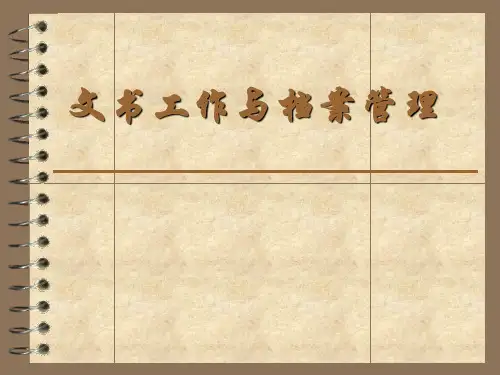 文书工作与档案管理